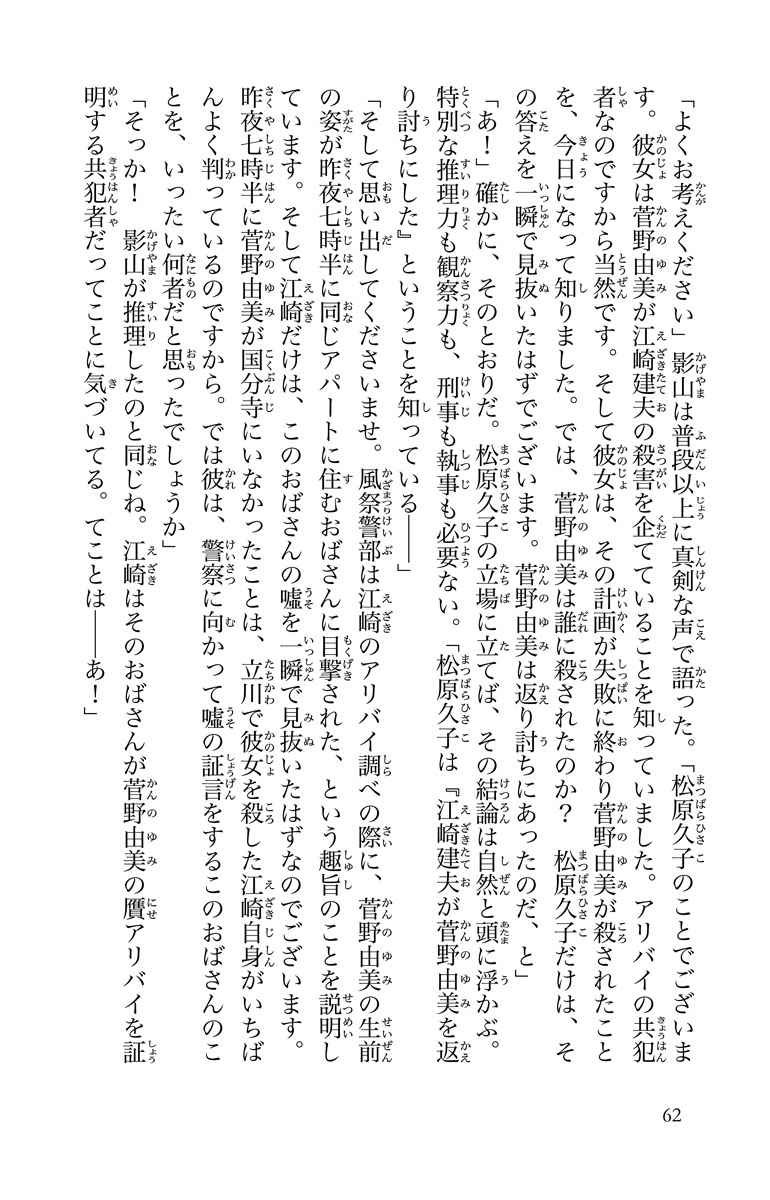 「よくお考えください」影山は普段以上に真剣な声で語った。「松原久子のことでございま
す。彼女は菅野由美が江崎建夫の殺害を企てていることを知っていました。アリバイの共犯
者なのですから当然です。そして彼女は、その計画が失敗に終わり菅野由美が殺されたこと
を、今日になって知りました。では、菅野由美は誰に殺されたのか？　松原久子だけは、そ
の答えを一瞬で見抜いたはずでございます。菅野由美は返り討ちにあったのだ、と」
「あ！」確かに、そのとおりだ。松原久子の立場に立てば、その結論は自然と頭に浮かぶ。
特別な推理力も観察力も、刑事も執事も必要ない。「松原久子は『江崎建夫が菅野由美を返
り討ちにした』ということを知っている――」
「そして思い出してくださいませ。風祭警部は江崎のアリバイ調べの際に、菅野由美の生前
の姿が昨夜七時半に同じアパートに住むおばさんに目撃された、という趣旨のことを説明し
ています。そして江崎だけは、このおばさんの嘘を一瞬で見抜いたはずなのでございます。
昨夜七時半に菅野由美が国分寺にいなかったことは、立川で彼女を殺した江崎自身がいちば
んよく判っているのですから。では彼は、警察に向かって嘘の証言をするこのおばさんのこ
とを、いったい何者だと思ったでしょうか」
「そっか！　影山が推理したのと同じね。江崎はそのおばさんが菅野由美の贋アリバイを証
明する共犯者だってことに気づいてる。てことは――あ！」
62